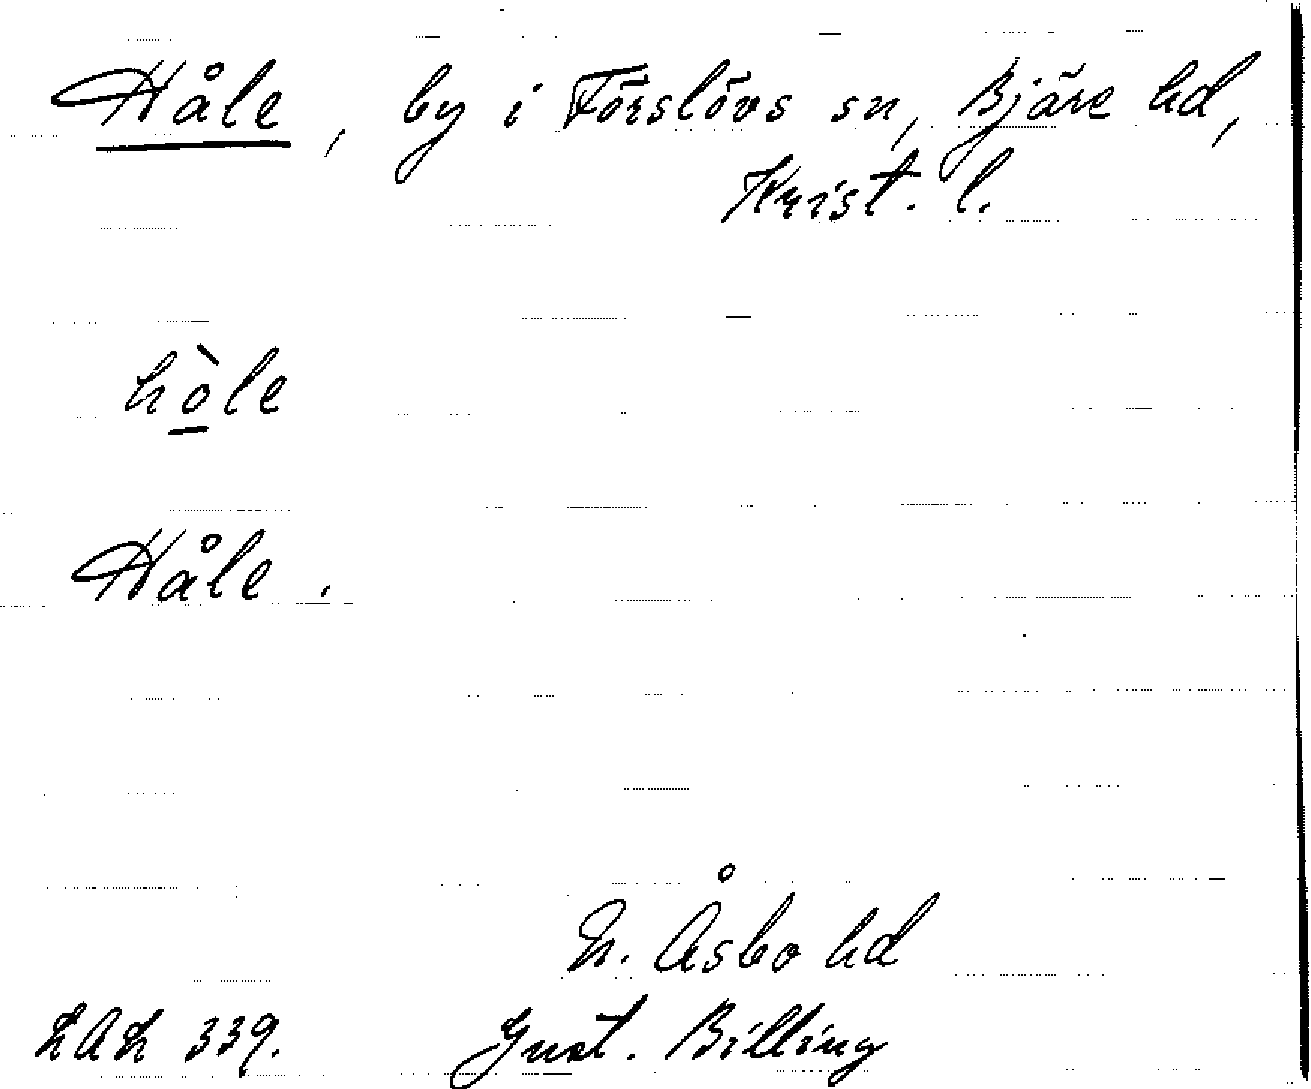 Håle, by i Förslövs sn, Bjäre hd,
Krist. l.
hò̲le
Håle.
S. Åsbo hd
LAL 339. Gust. Billing